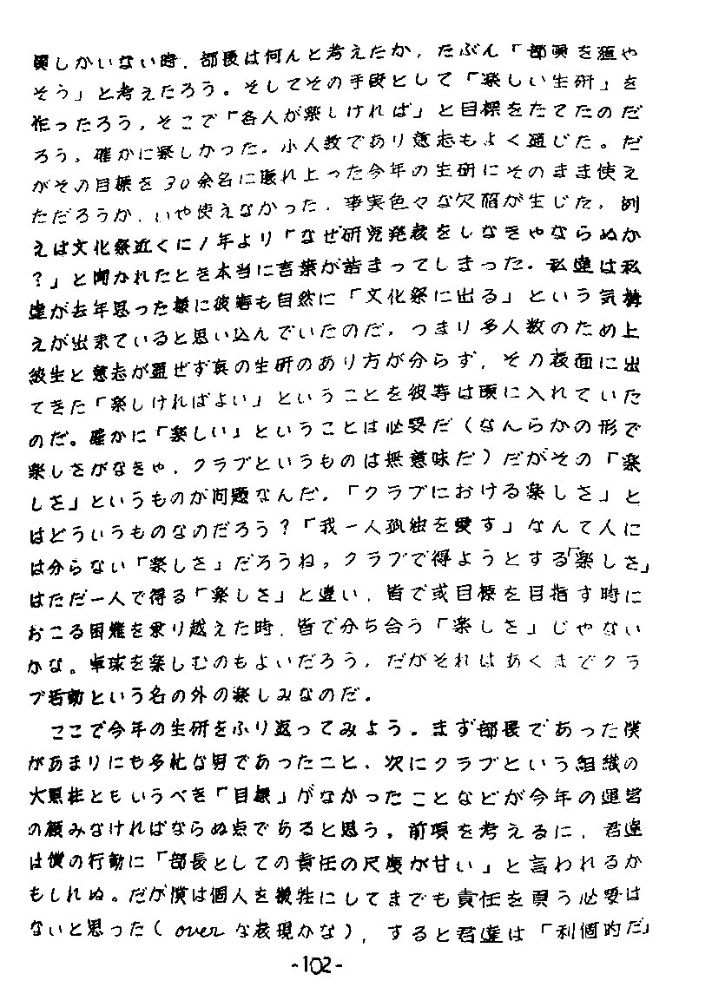 員しかいない時、部長は何んと考えたか、たぶん「部員を殖や
そう」と考えたろう。そしてその手段として「楽しい生研」を
作ったろう、そこで「各人が楽しければ」と目標をたてたのだ
ろう、確かに楽しかった。小人数であり意志もよく通じた。だ
がその目標を30余名に脹れ上った今年の生研にそのまま使え
ただろうか、いや使えなかった、事実色々な欠陥が生じた。例
えば文化祭近くに1年より「なぜ研究発表をしなきゃならぬか
?」と聞かれたとき本当に言葉が詰まってしまった。私達は私
達が去年思った様に彼等も自然に「文化祭に出る」という気構
えが出来ていると思い込んでいたのだ。つまり多人数のため上
級生と意志が通ぜず真の生研のあり方が分らず、その表面に出
てきた「楽しければよい」ということを彼等は頭に入れていた
のだ。確かに「楽しい」ということは必要だ(なんらかの形で
楽しさがなきゃ、クラブというものは無意味だ)だがその「楽
しさ」というものが問題なんだ。「クラブにおける楽しさ」と
はどういうものなのだろう?「我一人孤独を愛す」なんて人に
は分らない「楽しさ」だろうね。クラブで得ようとする「楽しさ」
はただ一人で得る「楽しさ」と違い、皆で或目標を目指す時に
おこる困難を乗り越えた時、皆で分ち合う「楽しさ」じゃない
かな。卓球を楽しむのもよいだろう、だがそれはあくまでクラ
ブ活動という名の外の楽しみなのだ。
ここで今年の生研をふり返ってみよう。まず部長であった僕
があまりにも多忙な男であったこと、次にクラブという組織の
大黒柱ともいうべき「目標」がなかったことなどが今年の運営
の顧みなければならぬ点であると思う。前項を考えるに、君達
は僕の行動に「部長としての責任の尺度が甘い」と言われるか
もしれぬ。だが僕は個人を犠牲にしてまでも責任を負う必要は
ないと思った(overな表現かな)、すると君達は「利個的だ」
-102-